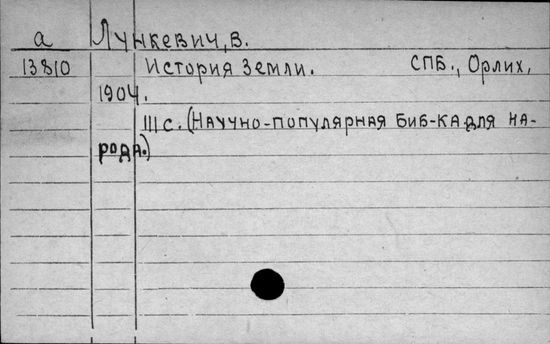 а Лункевич, В.
13810 История Земли. СПБ., Орлих,
1904.
111 с. (Научно-популярная Биб-ка для на-
рода.)